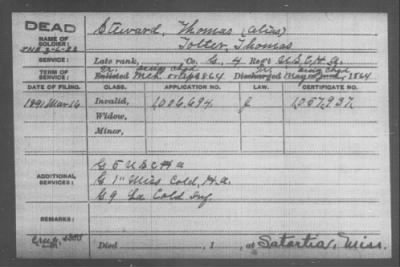 DEAD
NAME OF SOLDIER:
Steward, Thomas (alias)
Tolter, Thomas
SERVICE:
Late rank, Co. G, 4 Reg't
TERM OF SERVICE:
Enlisted 1864 Discharged 1864
DATE OF FILING.
CLASS.
APPLICATION NO.
LAW.
CERTIFICATE NO.
1891 Mar 16
Invalid,
1,006,694
J
1,057,937
Widow,
Minor,
ADDITIONAL SERVICES:
G 5 U S C H a
G 1" Miss Cold, H. a.
G 9 La Cold Inf
REMARKS:
Died , 1 , at Satartia, Miss.